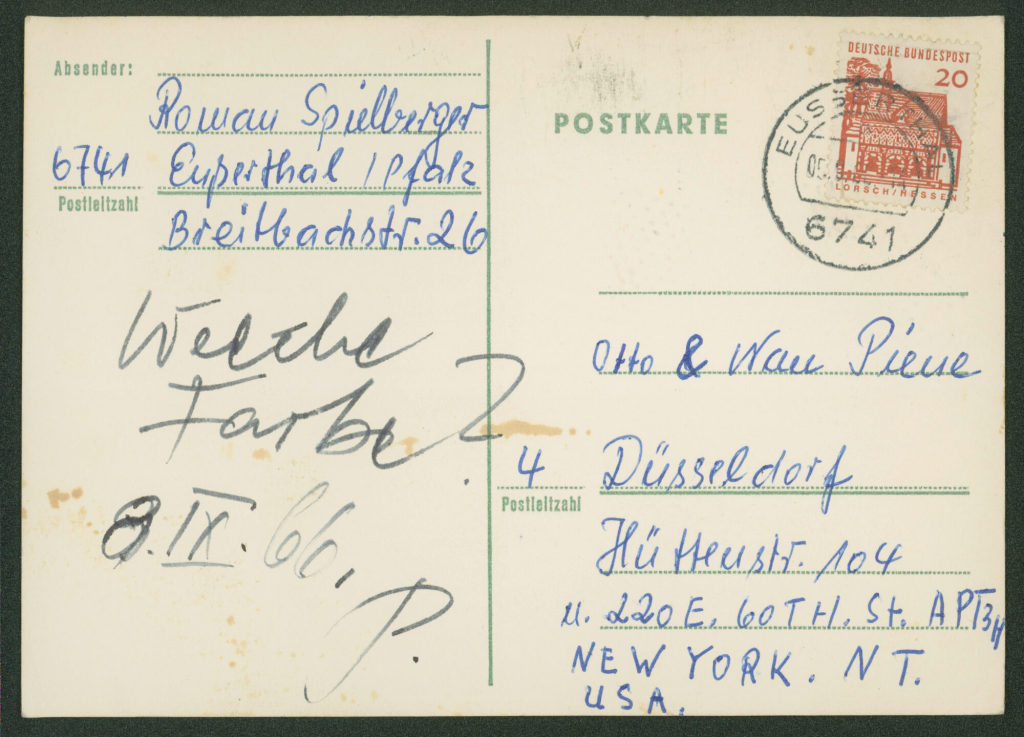 Absender:
Roman Spielberger
6741 Eußerthal / Pfalz
Postleitzahl
Breitbachstr. 26
Welche
Farbe?
8.IX.66.
P.
POSTKARTE
DEUTSCHE BUNDESPOST
20
LORSCH/HESSEN
EUSSERTHAL
6741
Otto & Nan Piene
4 Düsseldorf
Postleitzahl
Hüttenstr. 104
u. 220 E. 60TH. St. APT 3H
NEW YORK. NT.
USA.